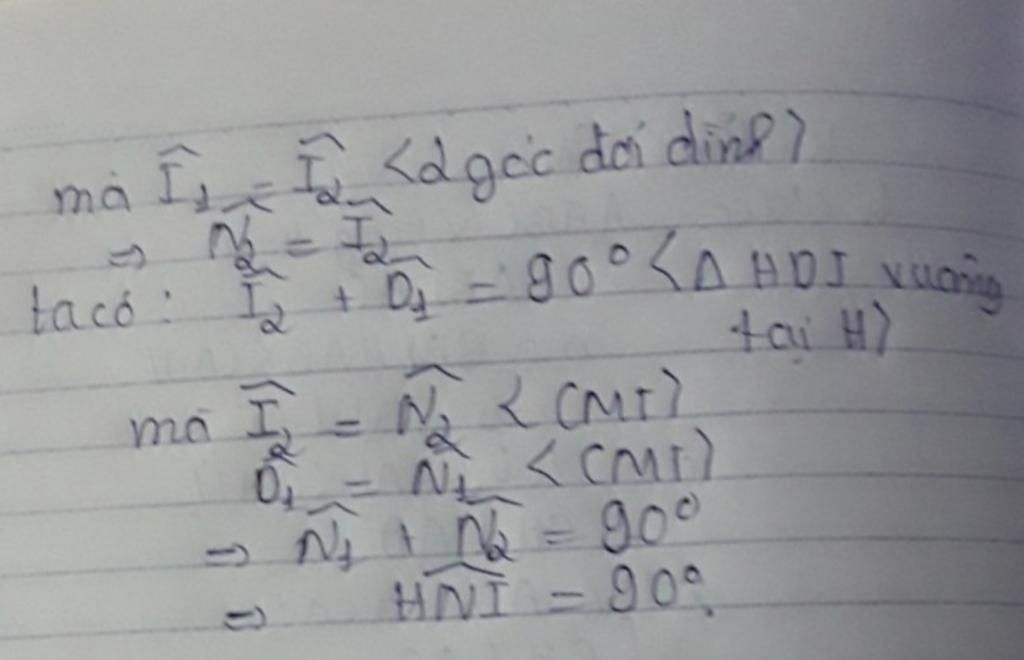 mà Î₁ = Î₂ <2 góc đối đỉnh>
⇒ N̂₂ = Î₂
ta có: Î₂ + D̂₁ = 90° <Δ HDI vuông
tại H>
mà Î₂ = N̂₂ <CMT>
D̂₁ = N̂₁ <CMT>
⇒ N̂₁ + N̂₂ = 90°
⇒ \widehat{HNI} = 90°.